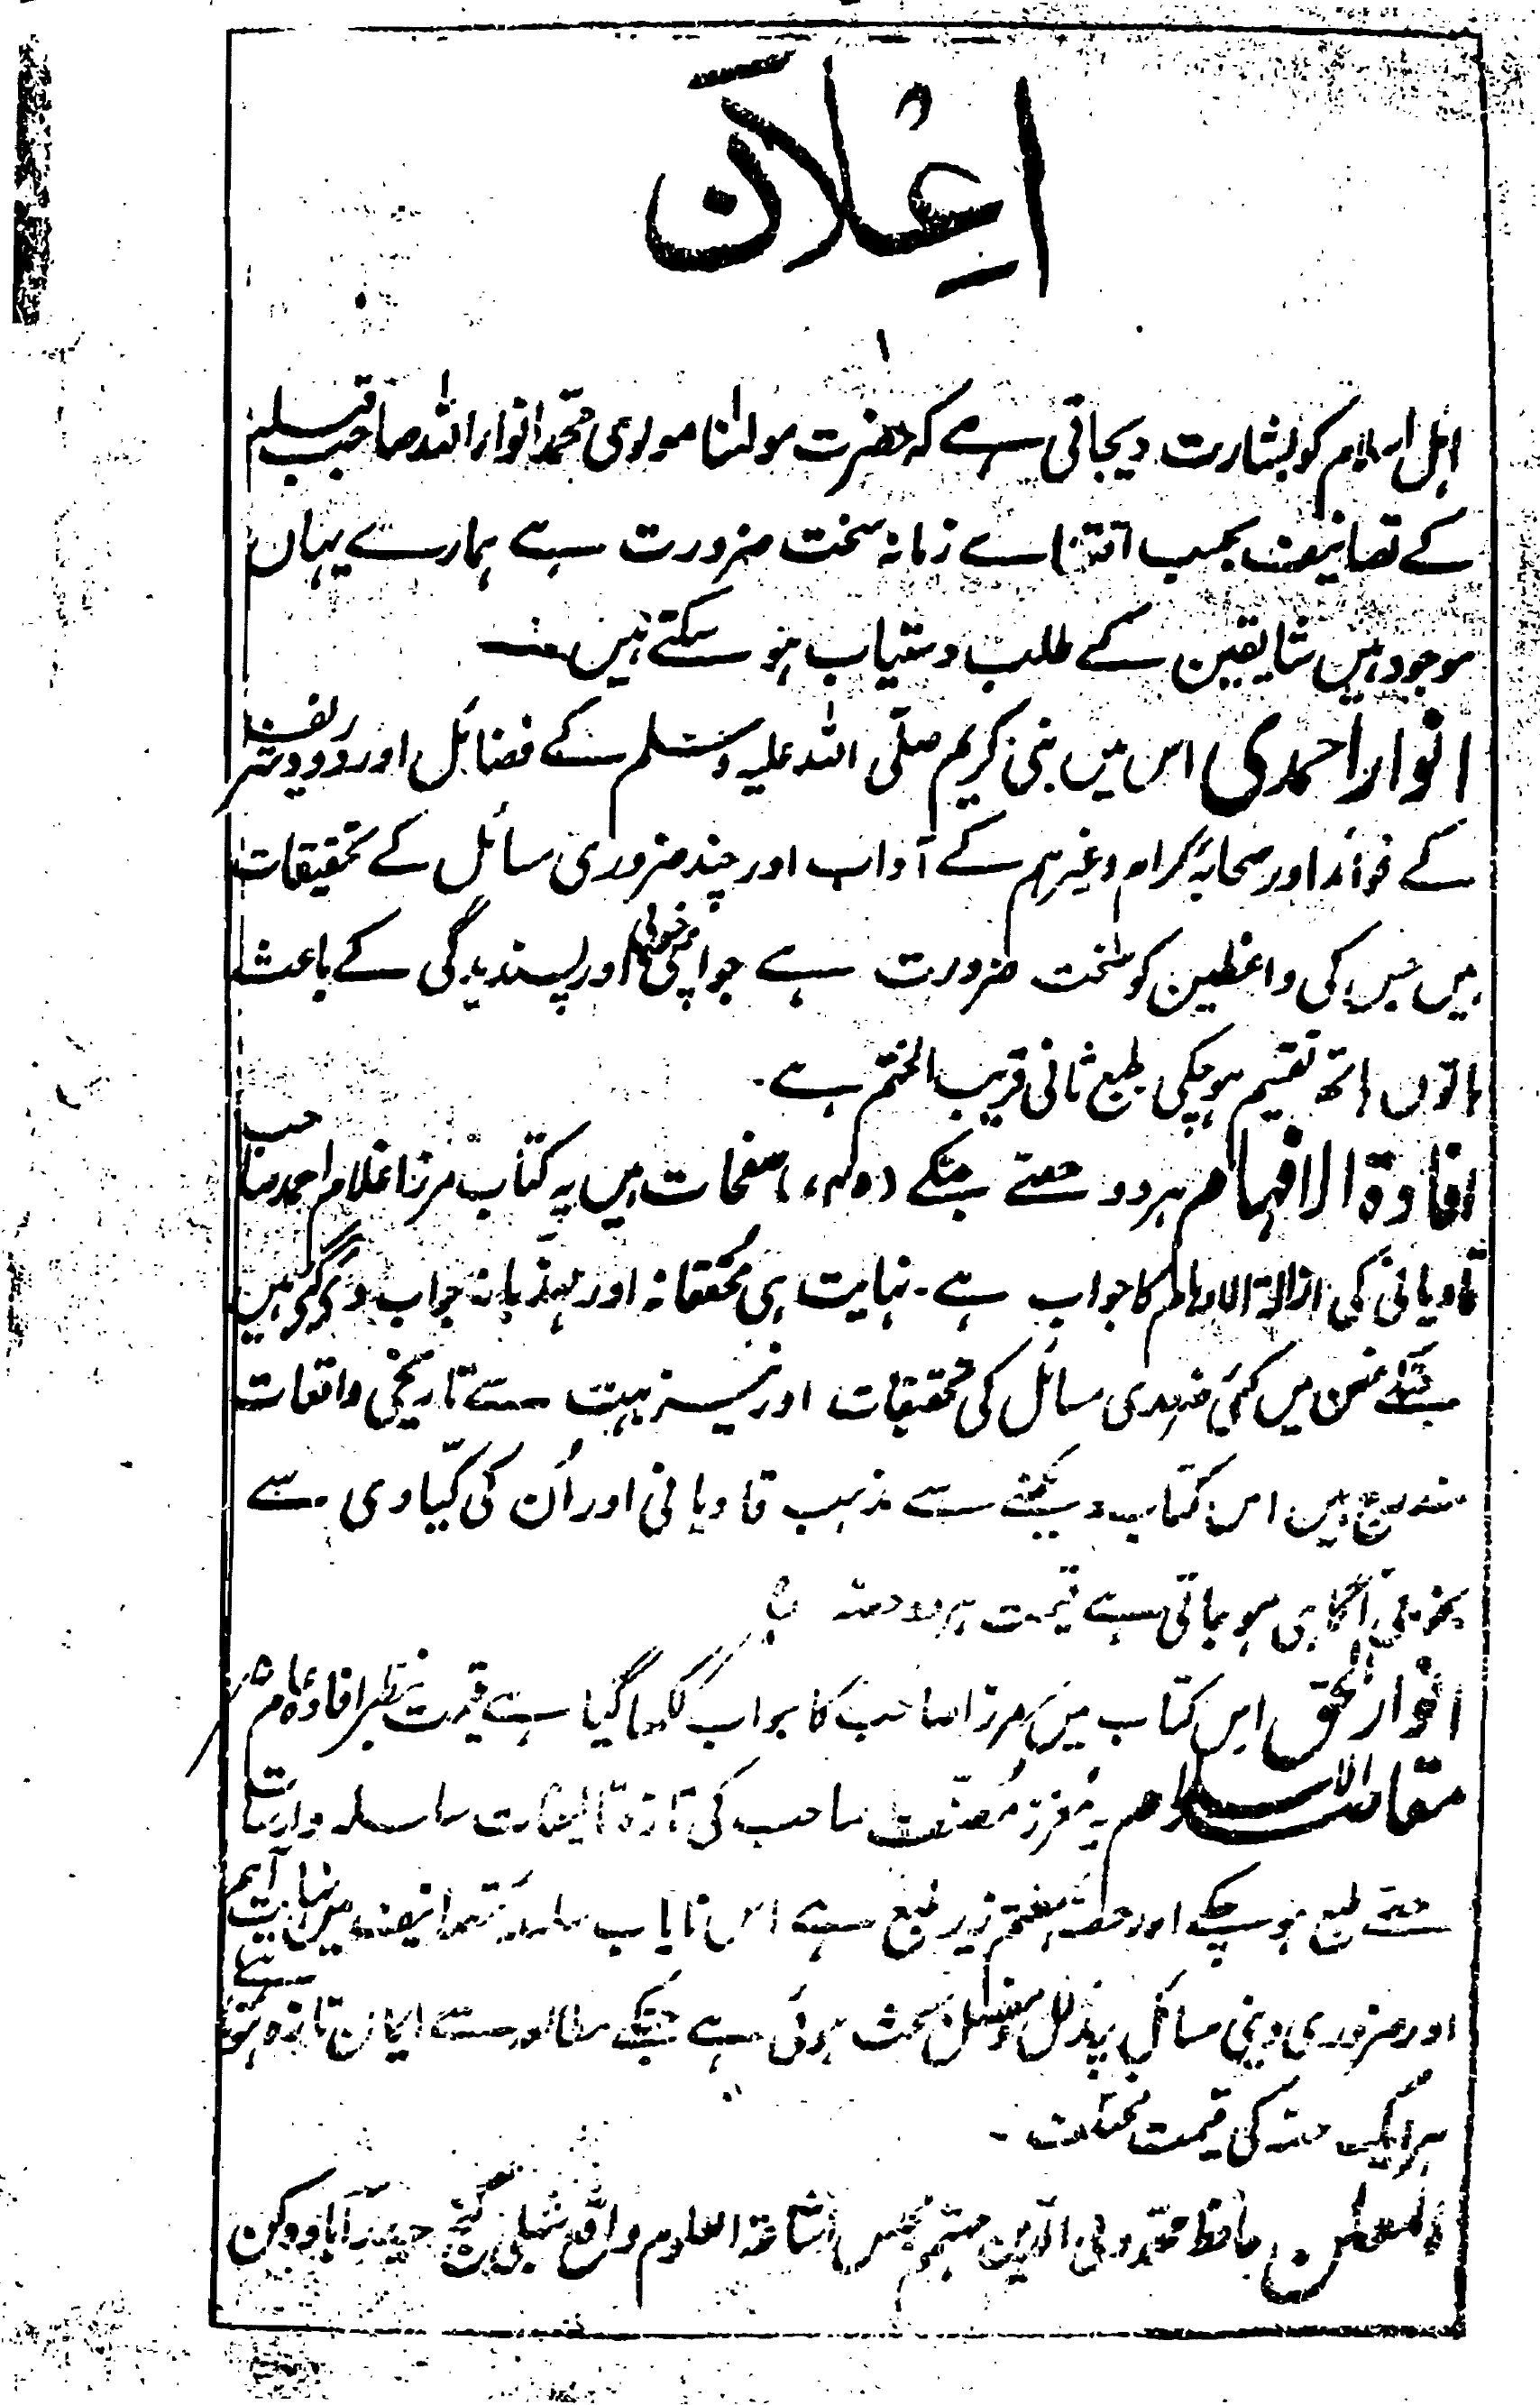 اِعْلَان
اہل اسلام کو بشارت دیجاتی ہے کہ حضرت مولٰنا مولوی محمد انوار اللہ صاحب قبلہ
کے تصانیف بحسب اقتضاے زمانہ سخت ضرورت ہے ہمارے یہاں
موجود ہیں شایقین کے طلب دستیاب ہو سکتے ہیں
انوار احمدی اس میں نبی کریم صلّی اللہ علیہ وسلم کے فضائل اور درود شریف
کے فوائد اور صحابۂ کرام وغیرہم کے آداب اور چند ضروری مسائل کے تحقیقات
ہیں جس کی واعظین کو سخت ضرورت ہے جو اپنی خوبی اور پسندیدگی کے باعث
ہاتوں ہاتھ تقسیم ہو چکی طبع ثانی قریب الختم ہے۔
افادۃ الافہام ہر دو حصے جنکے صفحات ہیں یہ کتاب مرزا غلام احمد صاحب
قادیانی کی ازالۃ الاوہام کا جواب ہے۔ نہایت ہی محققانہ اور مہذبانہ جواب دئے گئے ہیں
جنکے ضمن میں کئی ضروری مسائل کی تحقیقات اور نیز بہت سے تاریخی واقعات
مندرج ہیں اس کتاب دیکھنے سے مذہب قادیانی اور اُن کی کیّادی سے
بخوبی آگاہی ہو جاتی ہے قیمت ہر دو حصہ
انوار الحق اس کتاب میں مرزا صاحب کا جواب لکھا گیا ہے قیمت بنظر افادۂ عام
مقاصد الاسلام یہ معزز مُصنّف صاحب کی تازہ تالیفات سلسلہ وار سات
حصے طبع ہو چکے اور حصۂ ہفتم زیر طبع ہے اس نایاب سلسلہ تصانیف میں نہایت اہم
اور ضروری دینی مسائل پر مدلل مفصل بحث ہوئی ہے جنکے مطالعہ سے ایمان تازہ ہوتا ہے
ہر ایک حصہ کی قیمت مختلف۔
المعلن حافظ محمد ولی الدین مہتمم مجلس اشاعۃ العلوم واقع شبلی گنج حیدرآباد دکن